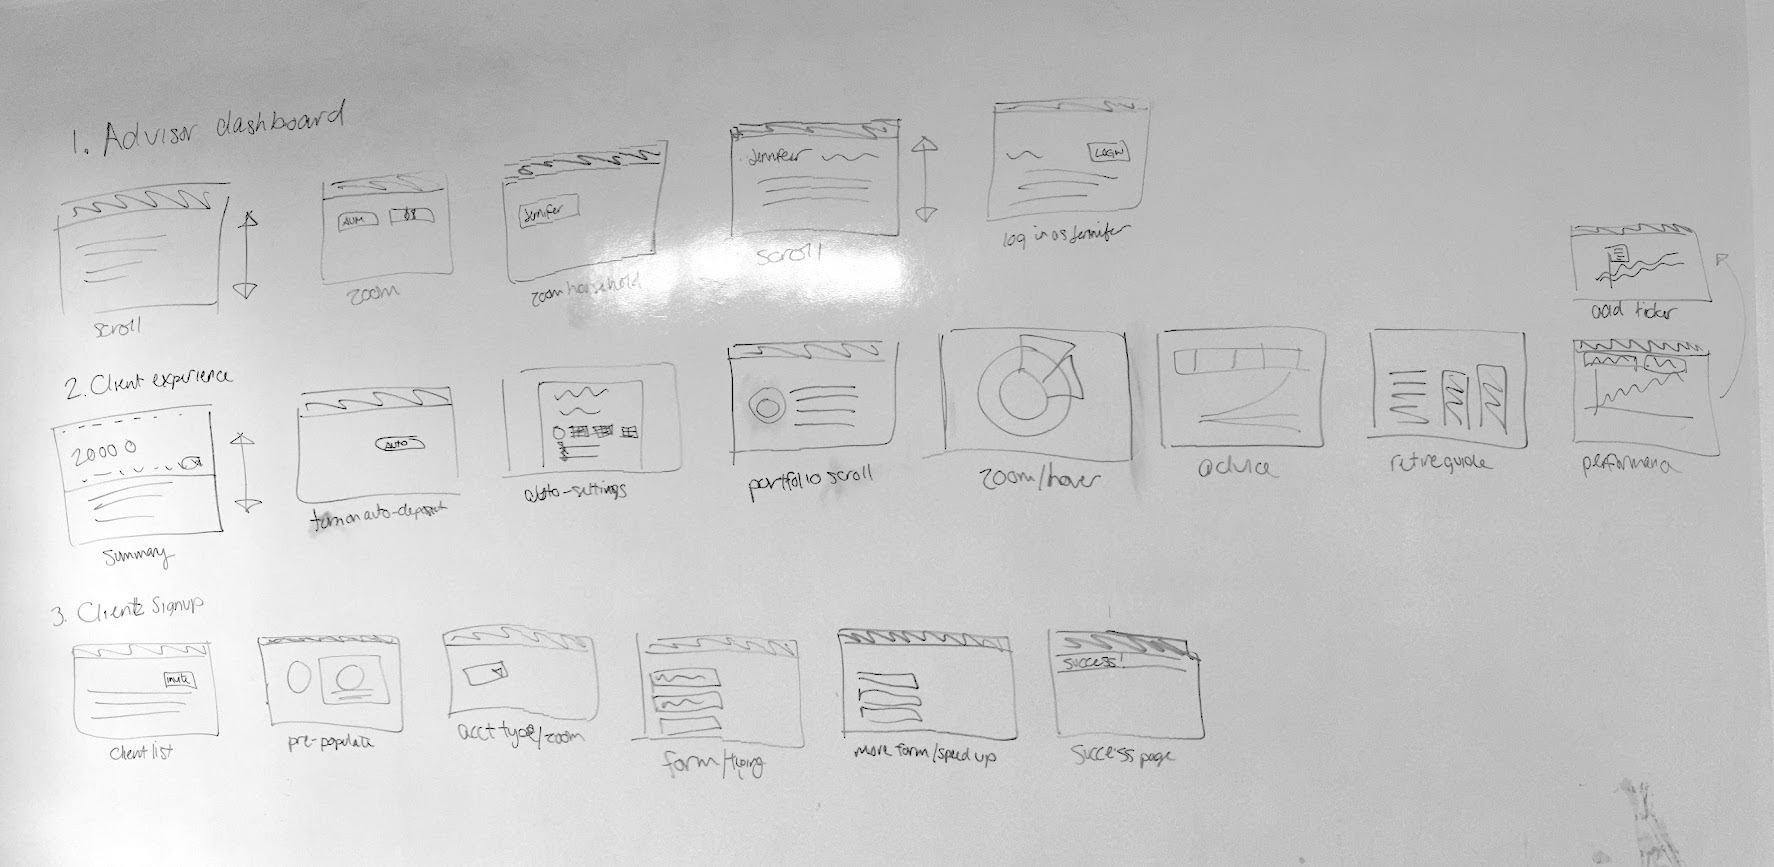 1. Advisor dashboard
scroll
AUM
zoom
Jennifer
zoom household
Jennifer
scroll
LOGIN
log in as Jennifer
2. Client experience
20000
summary
AUTO
turn on auto-deposit
auto-settings
portfolio scroll
zoom/hover
advice
retireguide
performance
add ticker
3. Client signup
invite
client list
pre-populate
acct type/zoom
form/typing
more form/speed up
success!
success page